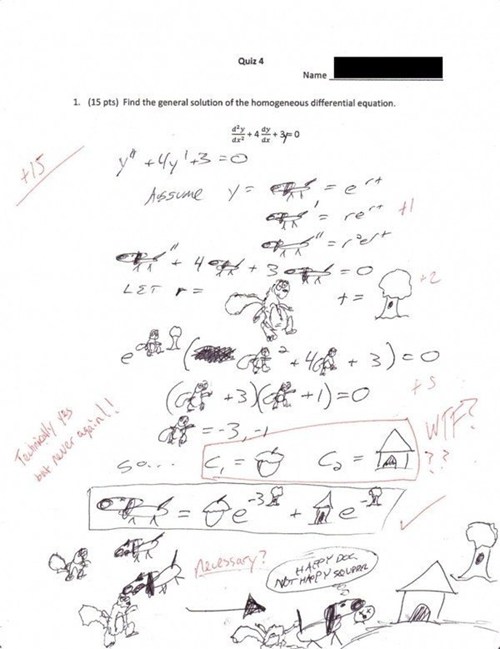 Quiz 4
Name
1. (15 pts) Find the general solution of the homogeneous differential equation.
d²y/dx² + 4 dy/dx + 3y=0
+15
y" + 4y' + 3 = 0
ASSUME y = = e^rt
' = re^rt +1
" = r²e^rt
" + 4 ' + 3 = 0
LET r = t = +2
e ( ² + 4 + 3) = 0
( + 3)( + 1) = 0 +5
= -3, -1
Technically yes
but never again!!
WTF?
??
SO... C₁ = C₂ =
= e^-3 + e^-
necessary?
HAPPY DOG
NOT HAPPY SQUIRREL